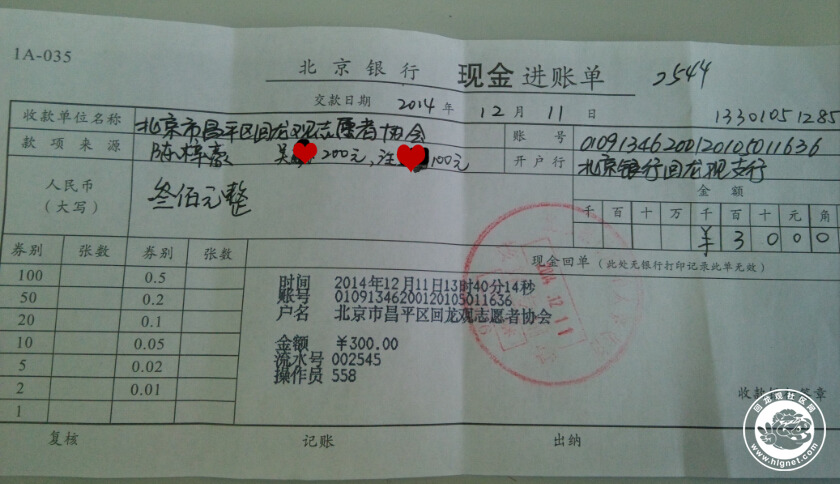 1A-035
北京银行 现金进账单 2544
交款日期 2014年12月11日 13301051285
收款单位名称 北京市昌平区回龙观志愿者协会 账号 01091346200120105011636
款项来源 陈梓豪 吴 200元, 汪 100元 开户行 北京银行回龙观支行
人民币(大写) 叁佰元整 金额
千 百 十 万 千 百 十 元 角
¥ 3 0 0 0 0
券别 张数 券别 张数 现金回单 (此处无银行打印记录此单无效)
100 0.5
50 0.2
20 0.1
10 0.05
5 0.02
2 0.01
1
时间 2014年12月11日13时40分14秒
账号 01091346200120105011636
户名 北京市昌平区回龙观志愿者协会
金额 ¥300.00
流水号 002545
操作员 558
2014.12.11
收款 签章
复核 记账 出纳
回龙观社区网
www.hlgnet.com